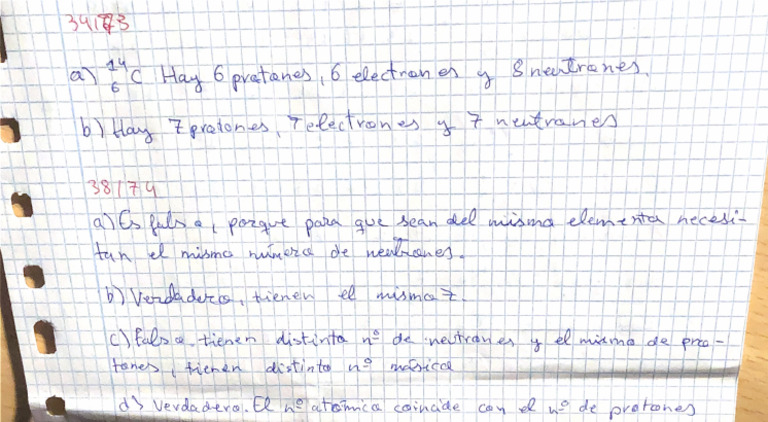 34/73
a) ¹⁴₆C Hay 6 protones, 6 electrones y 8 neutrones.
b) Hay 7 protones, 7 electrones y 7 neutrones
38/74
a) Es falso, porque para que sean del mismo elemento necesi-
tan el mismo número de neutrones.
b) Verdadero, tienen el mismo Z.
c) Falso. tienen distinto nº de neutrones y el mismo de pro-
tones, tienen distinto nº másico
d) Verdadero. El nº atómico coincide con el nº de protones